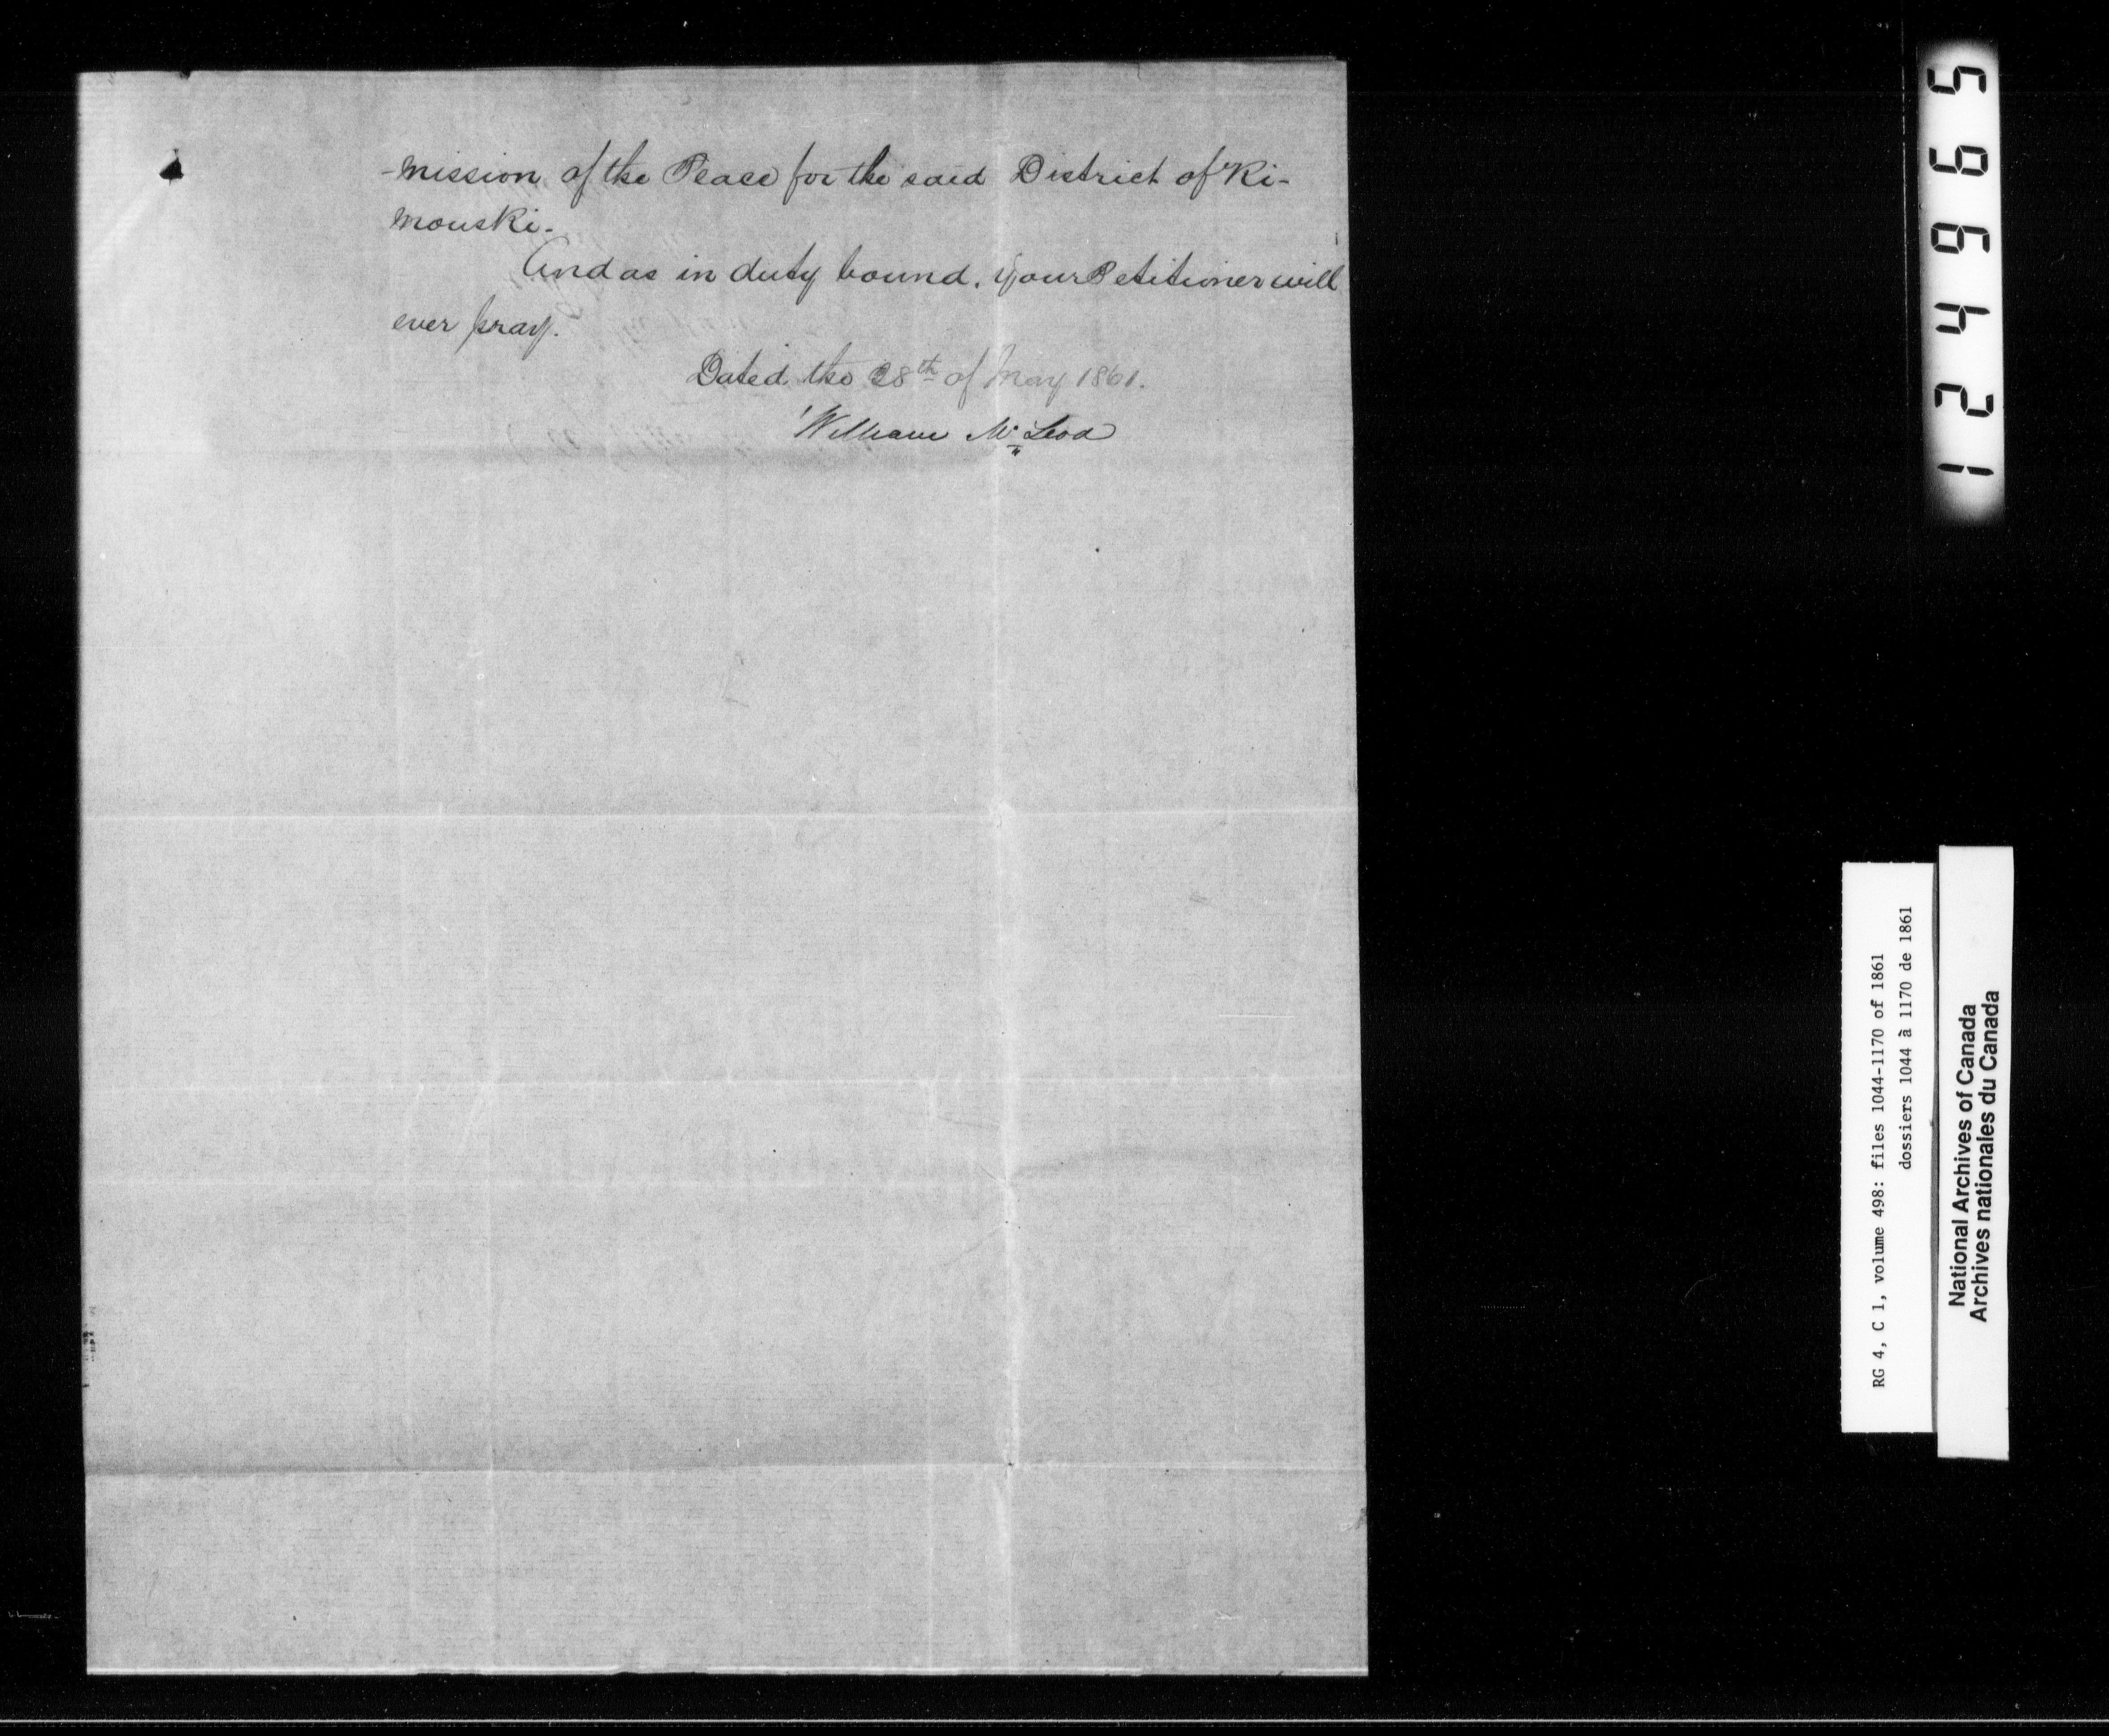 -mission of the Peace for the said District of Ri-
mouski.
And as in duty bound, your Petitioner will
ever pray.
Dated the 28th of May 1861.
William McLeod
124965
RG 4, C 1, volume 498: files 1044-1170 of 1861
dossiers 1044 à 1170 de 1861
National Archives of Canada
Archives nationales du Canada